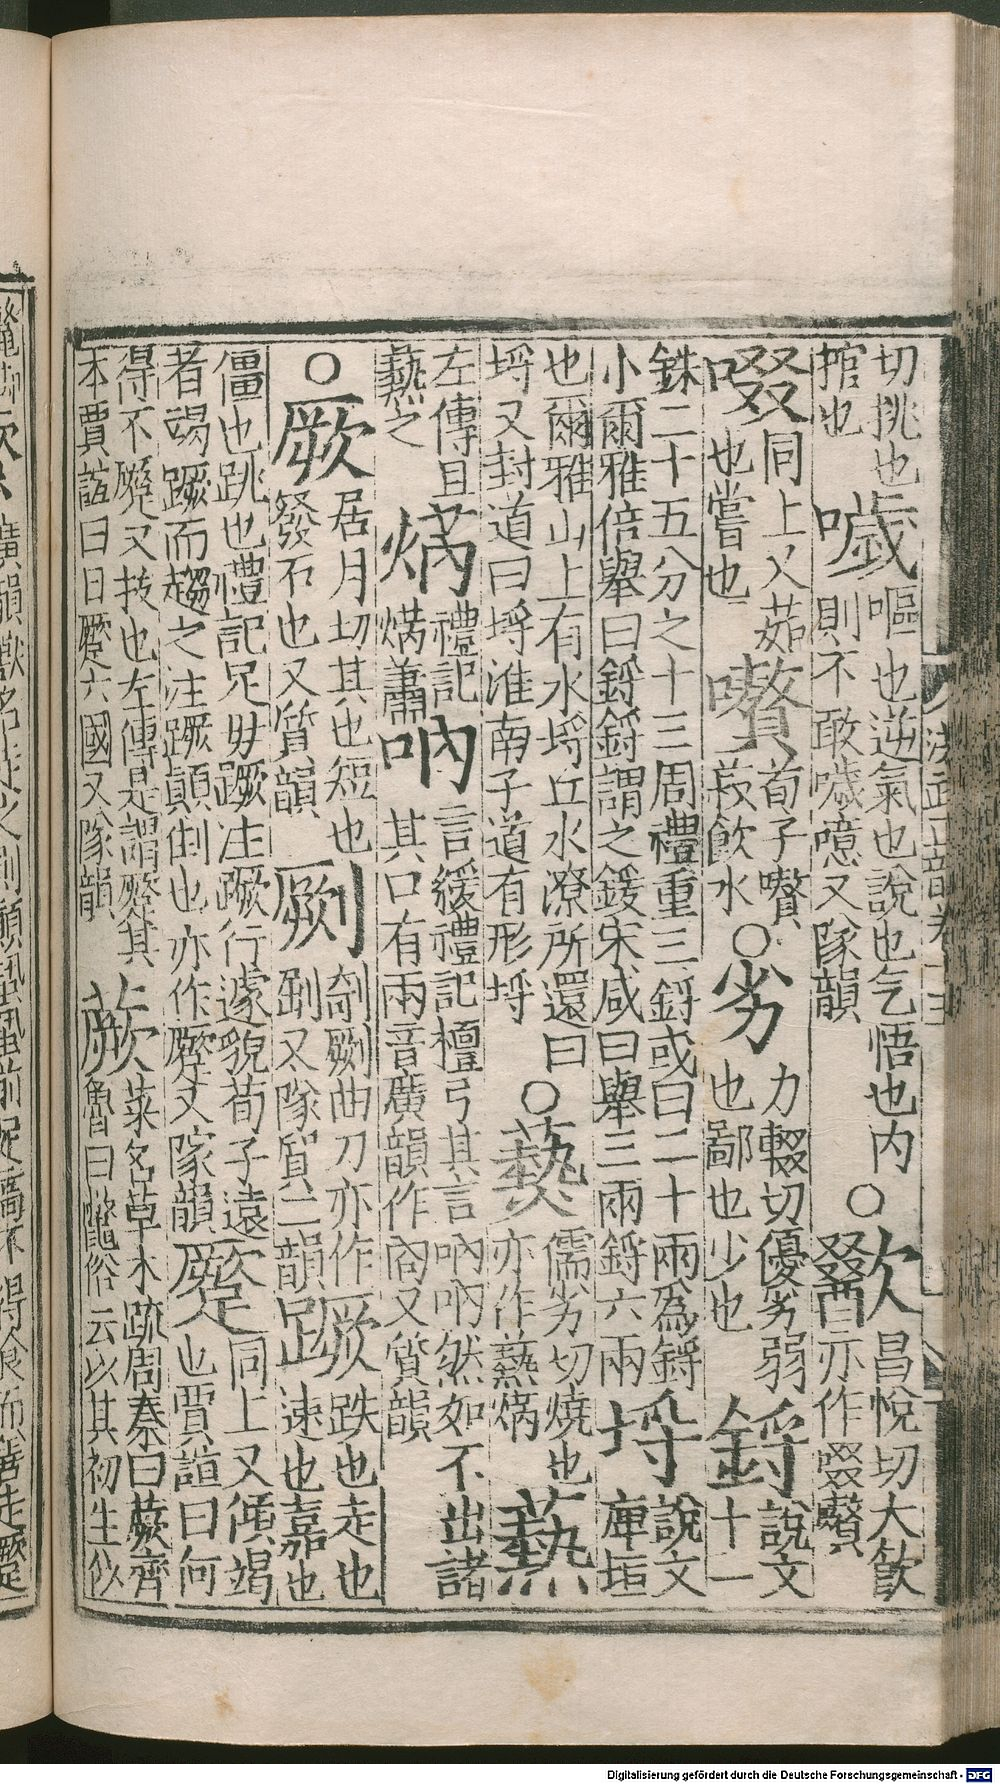 洪武正韻卷十三
切挑也
捾也
噦
嘔也逆氣也說也气悟也内
則不敢噦噫又隊韻
○歠
昌悅切大飲
亦作啜嚽
啜
同上又茹
也嘗也
嚽
荀子嚽
菽飲水
○劣
力輟切優劣弱
也鄙也少也
鋝
說文
十一
銖二十五分之十三周禮重三鋝或曰二十兩為鋝
小爾雅倍舉曰鋝鋝謂之鍰宋咸曰舉三兩鋝六兩
埒
說文
庳垣
也爾雅山上有水埒丘水潦所還曰
埒又封道曰埒淮南子道有形埒
○爇
儒劣切燒也
亦作蓺焫
爇
左傳且
爇之
焫
禮記
焫蕭
吶
言緩禮記檀弓其言吶吶然如不出諸
其口有兩音廣韻作㕯又質韻
○厥
居月切其也短也
發石也又質韻
劂
剞劂曲刀亦作
又隊質二韻
蹶
跌也走也
速也嘉也
僵也跳也禮記足毋蹶注蹶行遽貌荀子遠
者竭蹶而趨之注蹶顛倒也亦作蹷又隊韻
蹷
同上又傾竭
也賈誼曰何
得不蹷又拔也左傳是謂蹷其
本賈誼曰日蹷六國又隊韻
蕨
菜名草木疏周秦曰蕨齊
魯曰虌俗云以其初生似
Digitalisierung gefördert durch die Deutsche Forschungsgemeinschaft - DFG